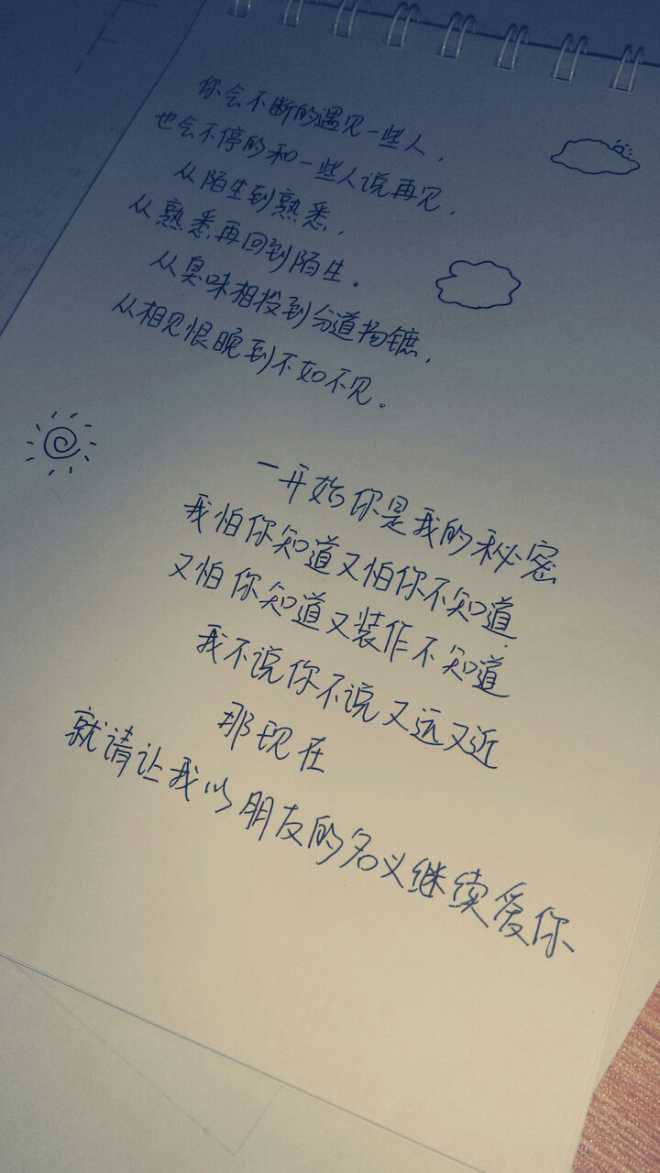 你会不断的遇见一些人，
也会不停的和一些人说再见，
从陌生到熟悉，
从熟悉再回到陌生。
从臭味相投到分道扬镳，
从相见恨晚到不如不见。
一开始你是我的秘密
我怕你知道又怕你不知道
又怕你知道又装作不知道
我不说你不说又远又近
那现在
就请让我以朋友的名义继续爱你